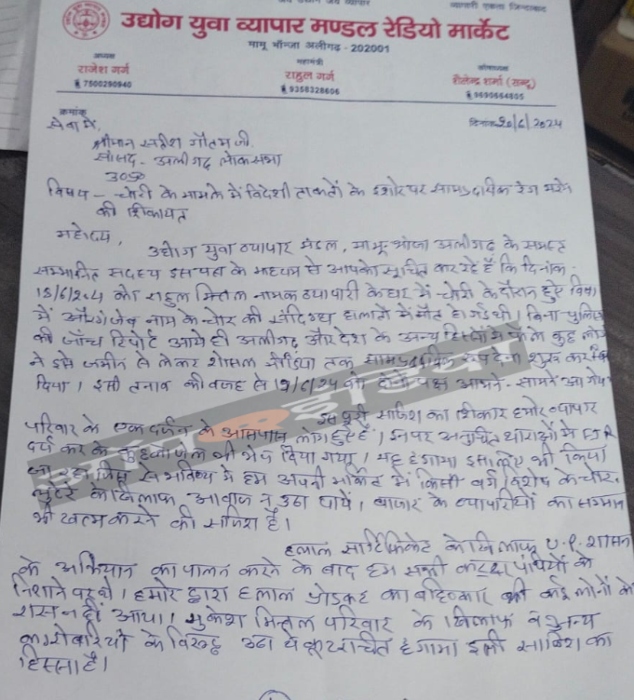 व्यापारी एकता जिन्दाबाद
उद्योग युवा व्यापार मण्डल रेडियो मार्केट
मामू भाँन्जा अलीगढ़ - 202001
अध्यक्ष
महामंत्री
कोषाध्यक्ष
राजेश गर्ग
राहुल गर्ग
शैलेन्द्र शर्मा (सन्टू)
7500290940
9358328606
8690664855
क्रमांक
दिनांक 20/6/2024
सेवा में,
श्रीमान सतीश गौतम जी
सांसद - अलीगढ़ लोकसभा
उ०प्र०
विषय - चोरी के मामले में विदेशी ताकतों के इशारे पर साम्प्रदायिक रंग भरने
की शिकायत
महोदय,
उद्योग युवा व्यापार मंडल, मामू-भांजा अलीगढ़ के समस्त
सम्मानित सदस्य इस पत्र के माध्यम से आपको सूचित कर रहे हैं कि दिनांक-
18/6/24 को राहुल मित्तल नामक व्यापारी के घर में चोरी के दौरान हुए विवाद
में औरंगजेब नाम के चोर की संदिग्ध हालातों में मौत हो गई थी। बिना पुलिस
की जाँच रिपोर्ट आये ही अलीगढ़ और देश के अन्य हिस्सों में फैले कुछ लोगों
ने इसे जमीन से लेकर शोसल मीडिया तक साम्प्रदायिक रूप देना शुरू कर
दिया। इसी तनाव की वजह से 19/6/24 को दोनों पक्ष आमने-सामने आ गये।
इस पूरी साजिश का शिकार हमारे व्यापार
परिवार के एक दर्जन के आसपास लोग हुए हैं। इनपर अनुचित धाराओं में FIR
दर्ज कर के जेल भी भेज दिया गया। यह हंगामा इसलिए भी किया
जा रहा जिस से भविष्य में हम अपनी मार्किट में किसी वर्ग विशेष के चोर,
लुटेरे के खिलाफ आवाज न उठा पायें। बाजार के व्यापारियों का सम्मान
भी खत्म करने की साजिश है।
हलाल सार्टिफिकेट के खिलाफ U.P. शासन
के अभियान का पालन करने के बाद हम सभी कट्टर पंथियों के
निशाने पर थे। हमारे द्वारा हलाल प्रोडक्ट का बहिष्कार भी कई लोगों को
रास नहीं आया। मुकेश मित्तल परिवार के खिलाफ व अन्य
कारोबारियों के विरुद्ध उठा ये कूटरचित हंगामा इसी साजिश का
हिस्सा है।